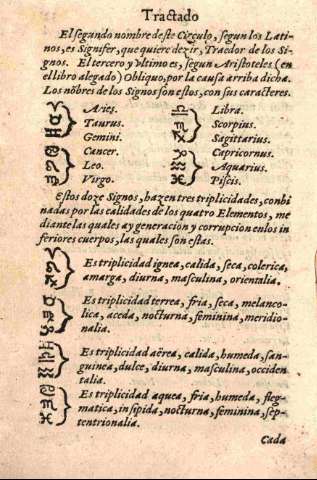 Tractado
El segando nombre deste Circulo, segun los Lati-
nos, es Signifer, que quiere dezir, Traedor de los Si-
gnos. El tercero y vltimo es, segun Aristoteles (en
el libro alegado) Obliquo, por la causa arriba dicha.
Los nõbres de los Signos son estos, con sus caracteres.
♈ Aries.
♉ Taurus.
♊ Gemini.
♋ Cancer.
♌ Leo.
♍ Virgo.
♎ Libra.
♏ Scorpius.
♐ Sagittarius.
♑ Capricornus.
♒ Aquarius.
♓ Piscis.
Estos doze Signos, hazen tres triplicidades, conbi
nadas por las calidades de los quatro Elementos, me
diante las quales ay generacion y corrupcion enlos in
feriores cuerpos, las quales son estas.
Es triplicidad ignea, calida, seca, colerica,
amarga, diurna, masculina, orientalia.
Es triplicidad terrea, fria, seca, melanco-
lica, aceda, nocturna, feminina, meridio-
nalia.
Es triplicidad aërea, calida, humeda, san-
guinea, dulce, diurna, masculina, occiden
talia.
Es triplicidad aquea, fria, humeda, fleg-
matica, insipida, nocturna, feminina, sep-
tentrionalia.
Cada